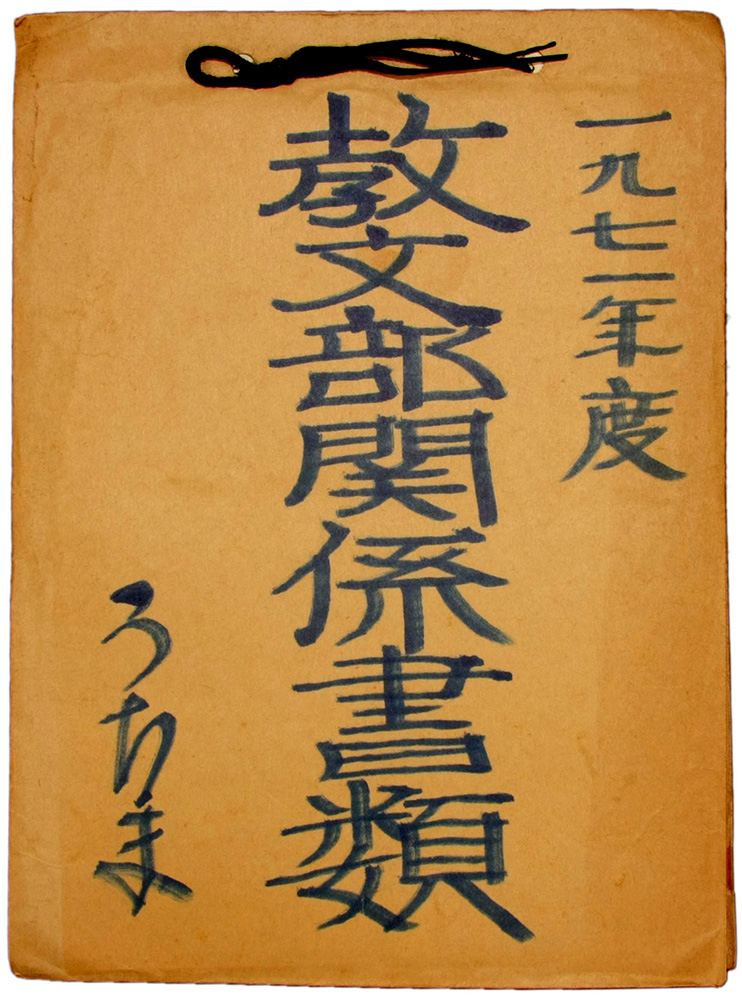 一九七一年度
教文部関係書類
うちま